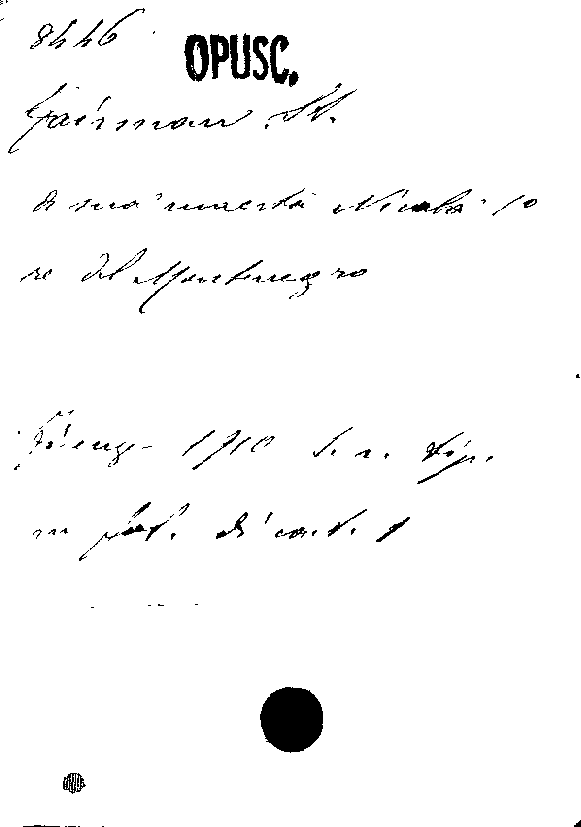 8446
OPUSC.
Fairman St.
di sua maestà Nicola 1º
re del Montenegro
Firenze 1910 s. n. tip.
in fol. di cart. 1